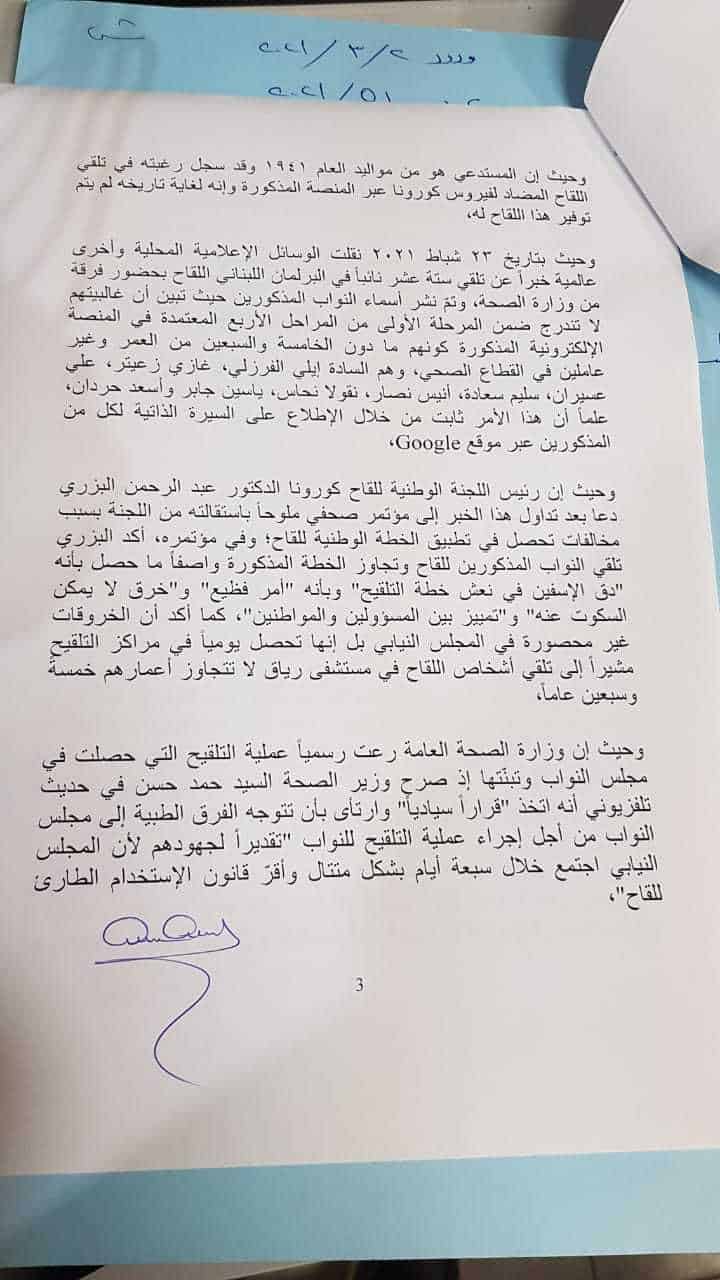 ورد ٢ / ٣ / ٢٠٢١
٥١ / ٢٠٢١
وحيث إن المستدعي هو من مواليد العام ١٩٤١ وقد سجل رغبته في تلقي
اللقاح المضاد لفيروس كورونا عبر المنصة المذكورة وإنه لغاية تاريخه لم يتم
توفير هذا اللقاح له،
وحيث بتاريخ ٢٣ شباط ٢٠٢١ نقلت الوسائل الإعلامية المحلية وأخرى
عالمية خبراً عن تلقي ستة عشر نائباً في البرلمان اللبناني اللقاح بحضور فرقة
من وزارة الصحة، وتمّ نشر أسماء النواب المذكورين حيث تبين أن غالبيتهم
لا تندرج ضمن المرحلة الأولى من المراحل الأربع المعتمدة في المنصة
الإلكترونية المذكورة كونهم ما دون الخامسة والسبعين من العمر وغير
عاملين في القطاع الصحي، وهم السادة إيلي الفرزلي، غازي زعيتر، علي
عسيران، سليم سعادة، أنيس نصار، نقولا نحاس، ياسين جابر وأسعد حردان،
علماً أن هذا الأمر ثابت من خلال الإطلاع على السيرة الذاتية لكل من
المذكورين عبر موقع Google،
وحيث إن رئيس اللجنة الوطنية للقاح كورونا الدكتور عبد الرحمن البزري
دعا بعد تداول هذا الخبر إلى مؤتمر صحفي ملوحاً باستقالته من اللجنة بسبب
مخالفات تحصل في تطبيق الخطة الوطنية للقاح؛ وفي مؤتمره، أكد البزري
تلقي النواب المذكورين للقاح وتجاوز الخطة المذكورة واصفاً ما حصل بأنه
"دق الإسفين في نعش خطة التلقيح" وبأنه "أمر فظيع" و"خرق لا يمكن
السكوت عنه" و"تمييز بين المسؤولين والمواطنين"، كما أكد أن الخروقات
غير محصورة في المجلس النيابي بل إنها تحصل يومياً في مراكز التلقيح
مشيراً إلى تلقي أشخاص اللقاح في مستشفى رياق لا تتجاوز أعمارهم خمسةً
وسبعين عاماً،
وحيث إن وزارة الصحة العامة رعت رسمياً عملية التلقيح التي حصلت في
مجلس النواب وتبنّتها إذ صرح وزير الصحة السيد حمد حسن في حديث
تلفزيوني أنه اتخذ "قراراً سيادياً" وارتأى بأن تتوجه الفرق الطبية إلى مجلس
النواب من أجل إجراء عملية التلقيح للنواب "تقديراً لجهودهم لأن المجلس
النيابي اجتمع خلال سبعة أيام بشكل متتال وأقرّ قانون الإستخدام الطارئ
للقاح"،
3